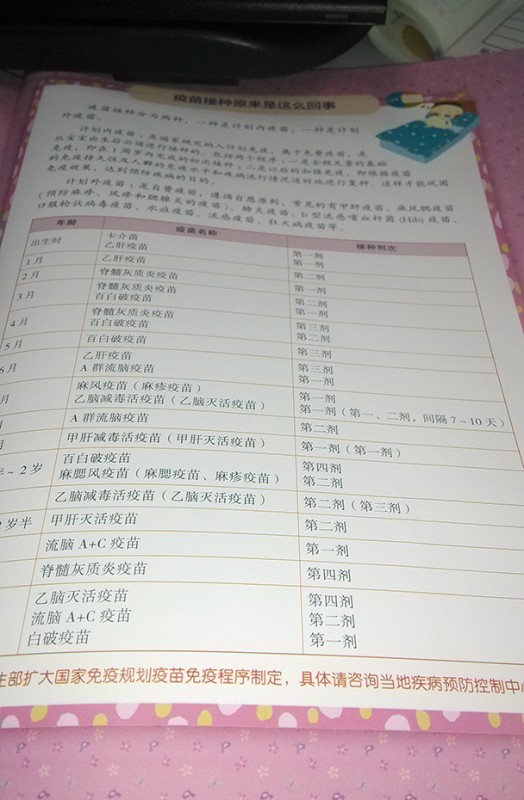 疫苗接种原来是这么回事
疫苗接种分为两种，一种是计划内疫苗，一种是计划
外疫苗。
计划内疫苗：是国家规定纳入计划免疫，属于免费疫苗，是
从宝宝出生后必须进行接种的。包括两个程序：一是全程足量的基础
免疫，即在1周岁内完成的初次接种；二是以后的加强免疫，即根据疫苗
的免疫持久性及人群的免疫水平和疾病流行情况适时地进行复种。这样才能巩固
免疫效果，达到预防疾病的目的。
计划外疫苗：是自费疫苗，遵循自愿原则，常见的有甲肝疫苗、麻风腮疫苗
（预防麻疹、风疹和腮腺炎的疫苗）、肺炎疫苗、b型流感嗜血杆菌（Hib）疫苗、
口服轮状病毒疫苗、水痘疫苗、流感疫苗、狂犬病疫苗等。
年龄 疫苗名称 接种剂次
出生时 卡介苗 第一剂
乙肝疫苗 第一剂
1月 乙肝疫苗 第二剂
2月 脊髓灰质炎疫苗 第一剂
3月 脊髓灰质炎疫苗 第二剂
百白破疫苗 第一剂
4月 脊髓灰质炎疫苗 第三剂
百白破疫苗 第二剂
5月 百白破疫苗 第三剂
6月 乙肝疫苗 第三剂
A群流脑疫苗 第一剂
月 麻风疫苗（麻疹疫苗） 第一剂
乙脑减毒活疫苗（乙脑灭活疫苗） 第一剂（第一、二剂，间隔7~10天）
月 A群流脑疫苗 第二剂
月 甲肝减毒活疫苗（甲肝灭活疫苗） 第一剂（第一剂）
半~2岁 百白破疫苗 第四剂
麻腮风疫苗（麻腮疫苗、麻疹疫苗） 第二剂
乙脑减毒活疫苗（乙脑灭活疫苗） 第二剂（第三剂）
岁半 甲肝灭活疫苗 第二剂
流脑A+C疫苗 第一剂
脊髓灰质炎疫苗 第四剂
乙脑灭活疫苗 第四剂
流脑A+C疫苗 第二剂
白破疫苗 第一剂
生部扩大国家免疫规划疫苗免疫程序制定，具体请咨询当地疾病预防控制中心